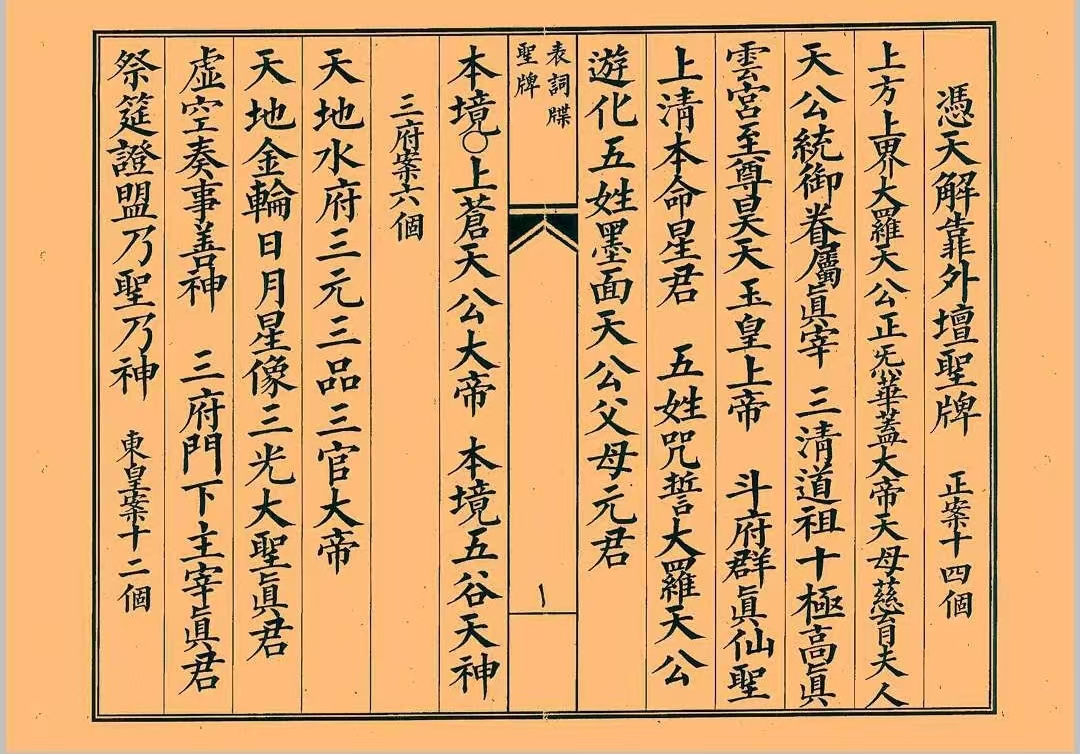 憑天解靠外壇聖牌　正案十四個
上方上界大羅天公正炁華蓋大帝天母慈育夫人
天公統御眷屬眞宰　三清道祖十極高眞
雲宮至尊昊天玉皇上帝　斗府群眞仙聖
上清本命星君　五姓咒誓大羅天公
遊化五姓墨面天公父母元君
表詞牒
聖牌
一
本境〇上蒼天公大帝　本境五谷天神
三府案六個
天地水府三元三品三官大帝
天地金輪日月星像三光大聖眞君
虛空奏事善神　三府門下主宰眞君
祭筵證盟乃聖乃神　東皇案十二個